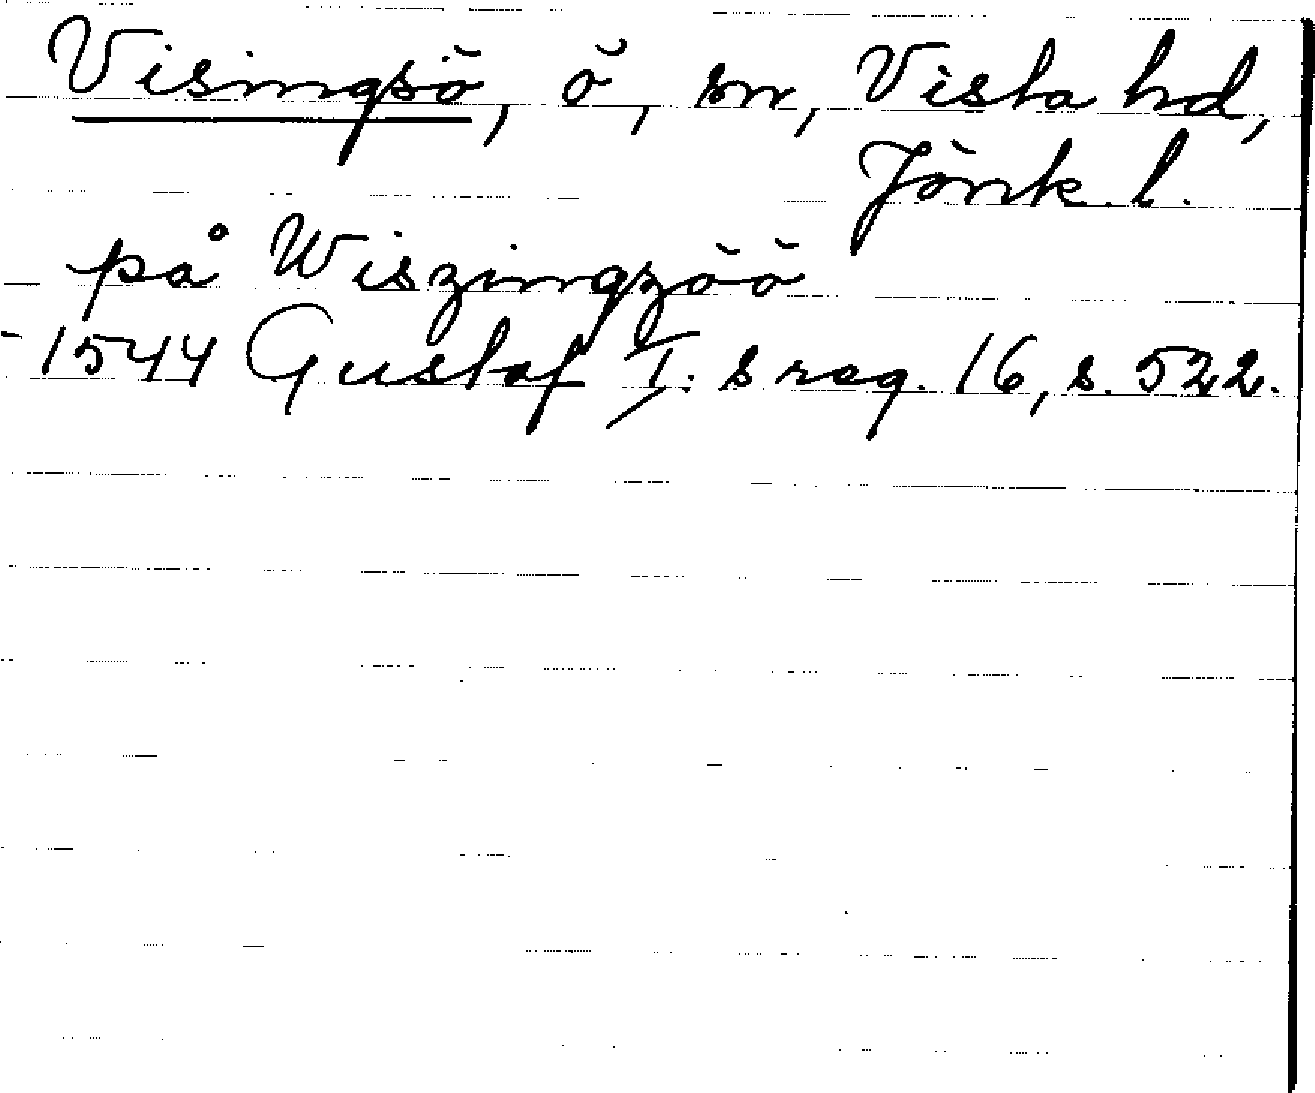 Visingsö, ö, sn, Vista hd,
Jönk. l.
på Wiszingzöö
1544 Gustaf I:s reg. 16, s. 522.